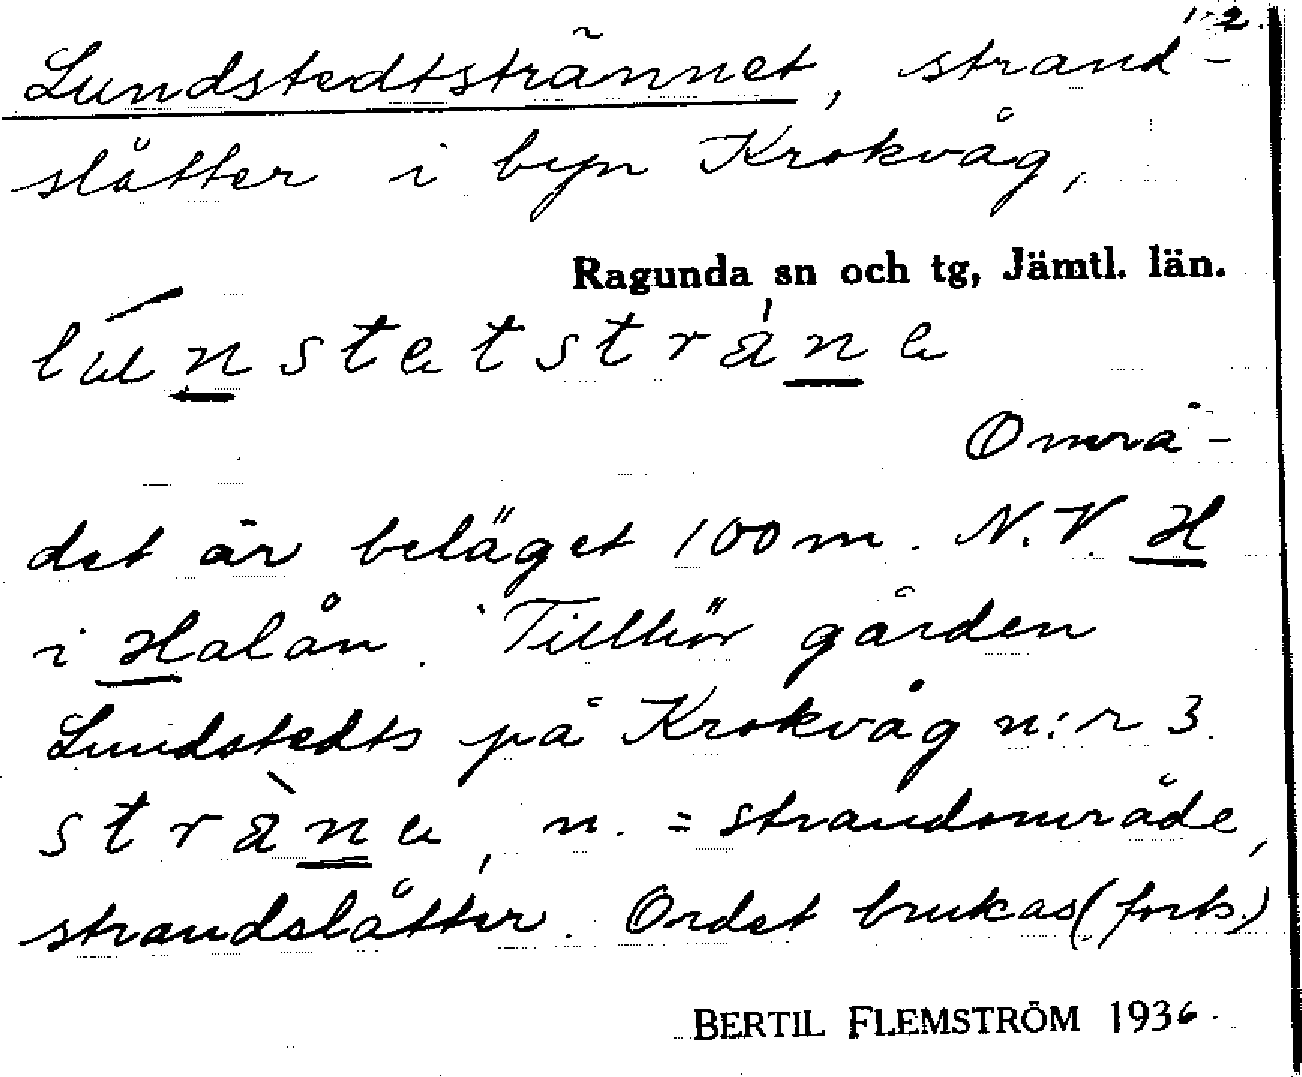 1-2.
Lundstedtstrännet, strand-
slåtter i byn Krokvåg,
Ragunda sn och tg, Jämtl. län.
Områ-
det är beläget 100 m. N.V. H
i Halån. Tillhör gården
Lundstedts på Krokvåg n:r 3.
n. = strandområde,
strandslåtter. Ordet brukas (forts.)
BERTIL FLEMSTRÖM 1936